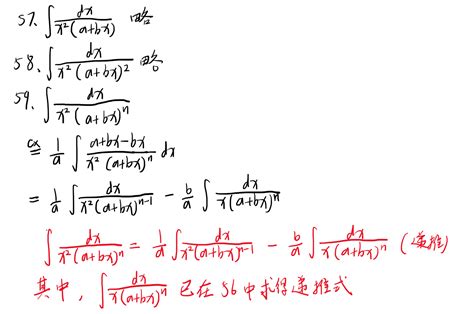 57. ∫ dx/(x²(a+bx)) 略
58. ∫ dx/(x²(a+bx)²) 略
59. ∫ dx/(x²(a+bx)ⁿ)
= 1/a ∫ (a+bx-bx)/(x²(a+bx)ⁿ) dx
= 1/a ∫ dx/(x²(a+bx)ⁿ⁻¹) - b/a ∫ dx/(x(a+bx)ⁿ)
∫ dx/(x²(a+bx)ⁿ) = 1/a ∫ dx/(x²(a+bx)ⁿ⁻¹) - b/a ∫ dx/(x(a+bx)ⁿ) (递推)
其中, ∫ dx/(x(a+bx)ⁿ) 已在 56 中求得递推式